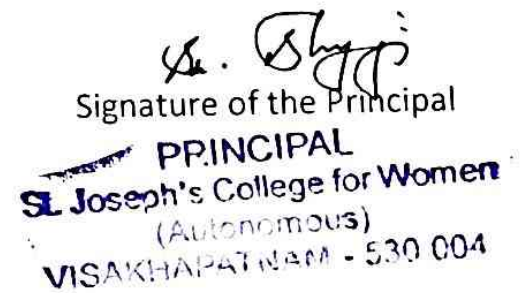 Signature of the Principal
PRINCIPAL
St. Joseph's College for Women
(Autonomous)
VISAKHAPATNAM - 530 004